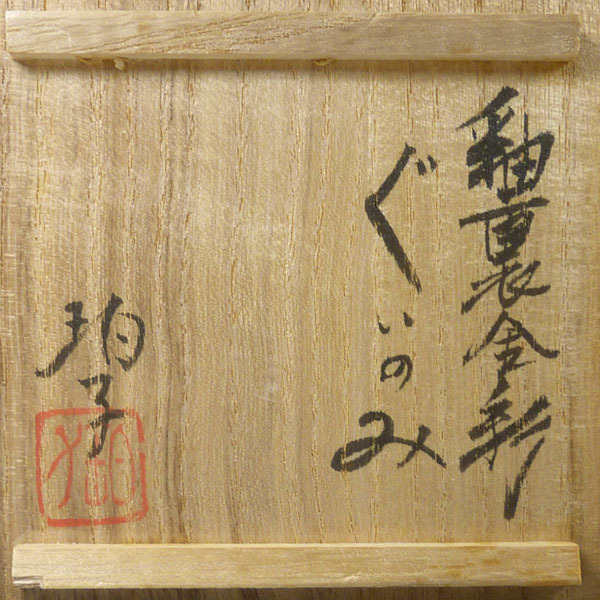 釉裏金彩
ぐいのみ
珀子